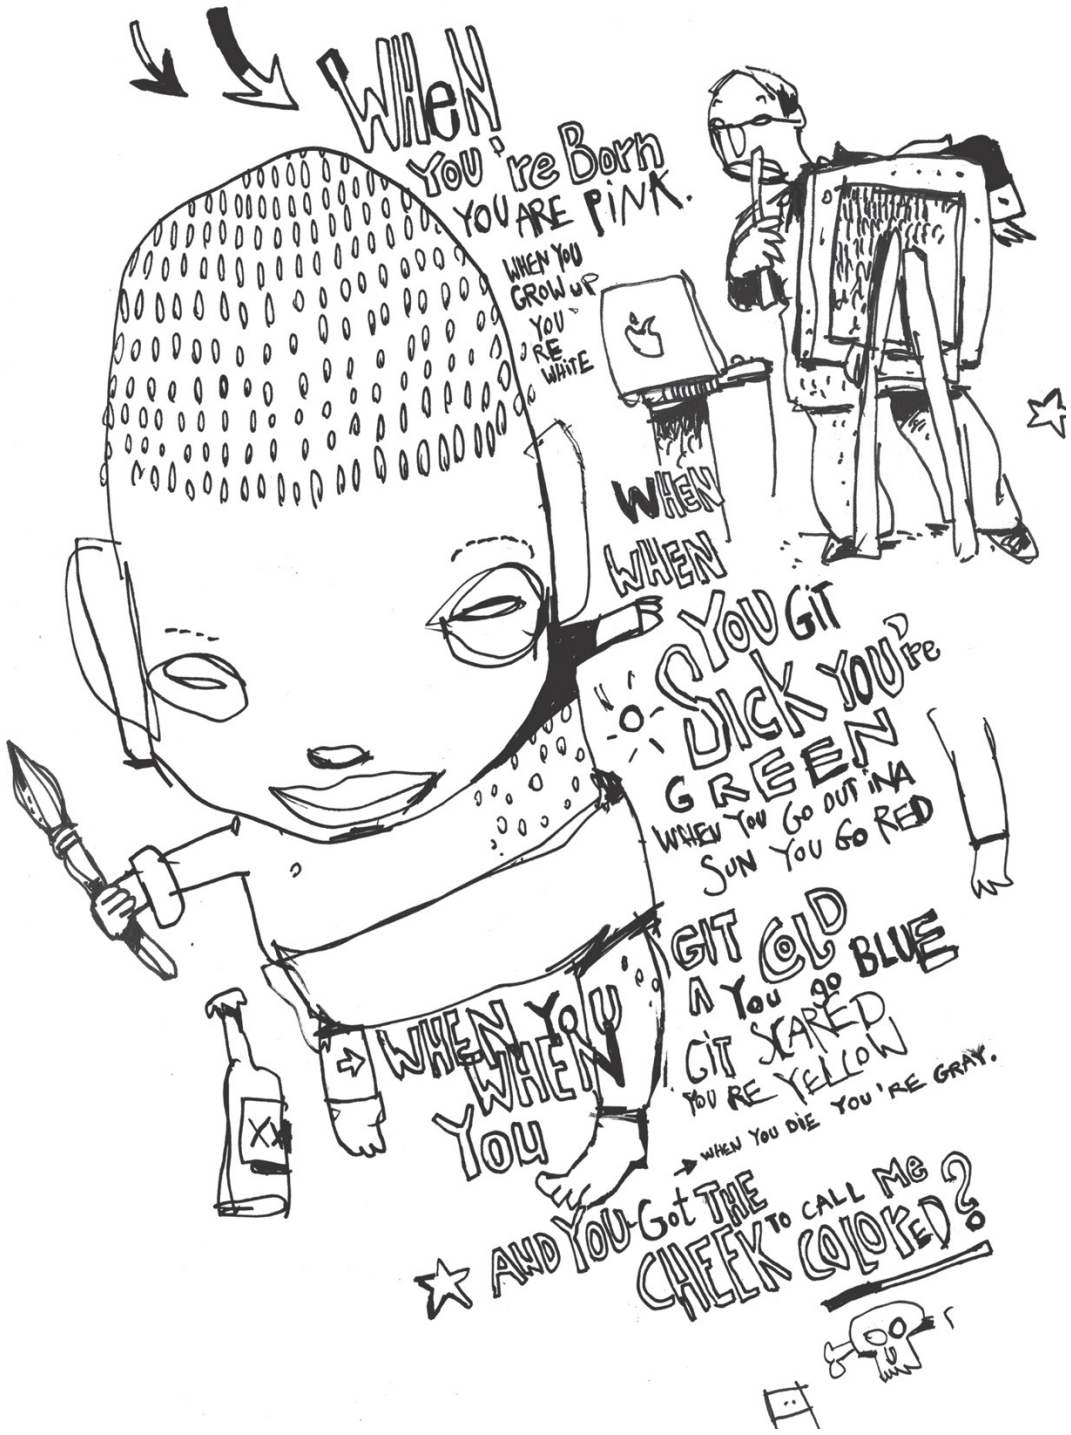 WHeN
YOU're Born
YOU ARE PiNK.
WHEN YOU
GROW UP
YOU
RE
WHITE
WHEN
WHEN
YOU GiT
SICK YOU're
GREEN
WHEN YOU GO OUT iN A
SUN YOU GO RED
GIT COLD
A YOU go BLUE
GiT SCARED
YOU RE YELLOW
WHEN YOU DIE YOU'RE GRAY.
WHEN YOU
WHEN
YOU
AND YOU Got THE
CHEEK TO CALL Me
COLOReD?
XX